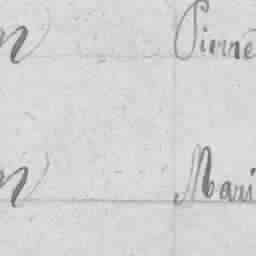 n Pierre
n Mari